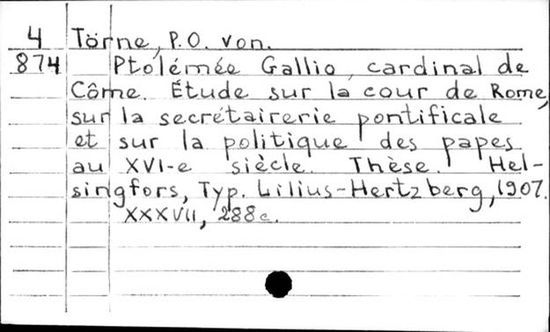 4 Törne, P.O. von.
874 Ptolémée Gallio, cardinal de
Côme. Étude sur la cour de Rome,
sur la secrétairerie pontificale
et sur la politique des papes
au XVI-e siècle. Thèse. Hel-
singfors, Typ. Lilius-Hertzberg, 1907.
XXXVII, 288c.